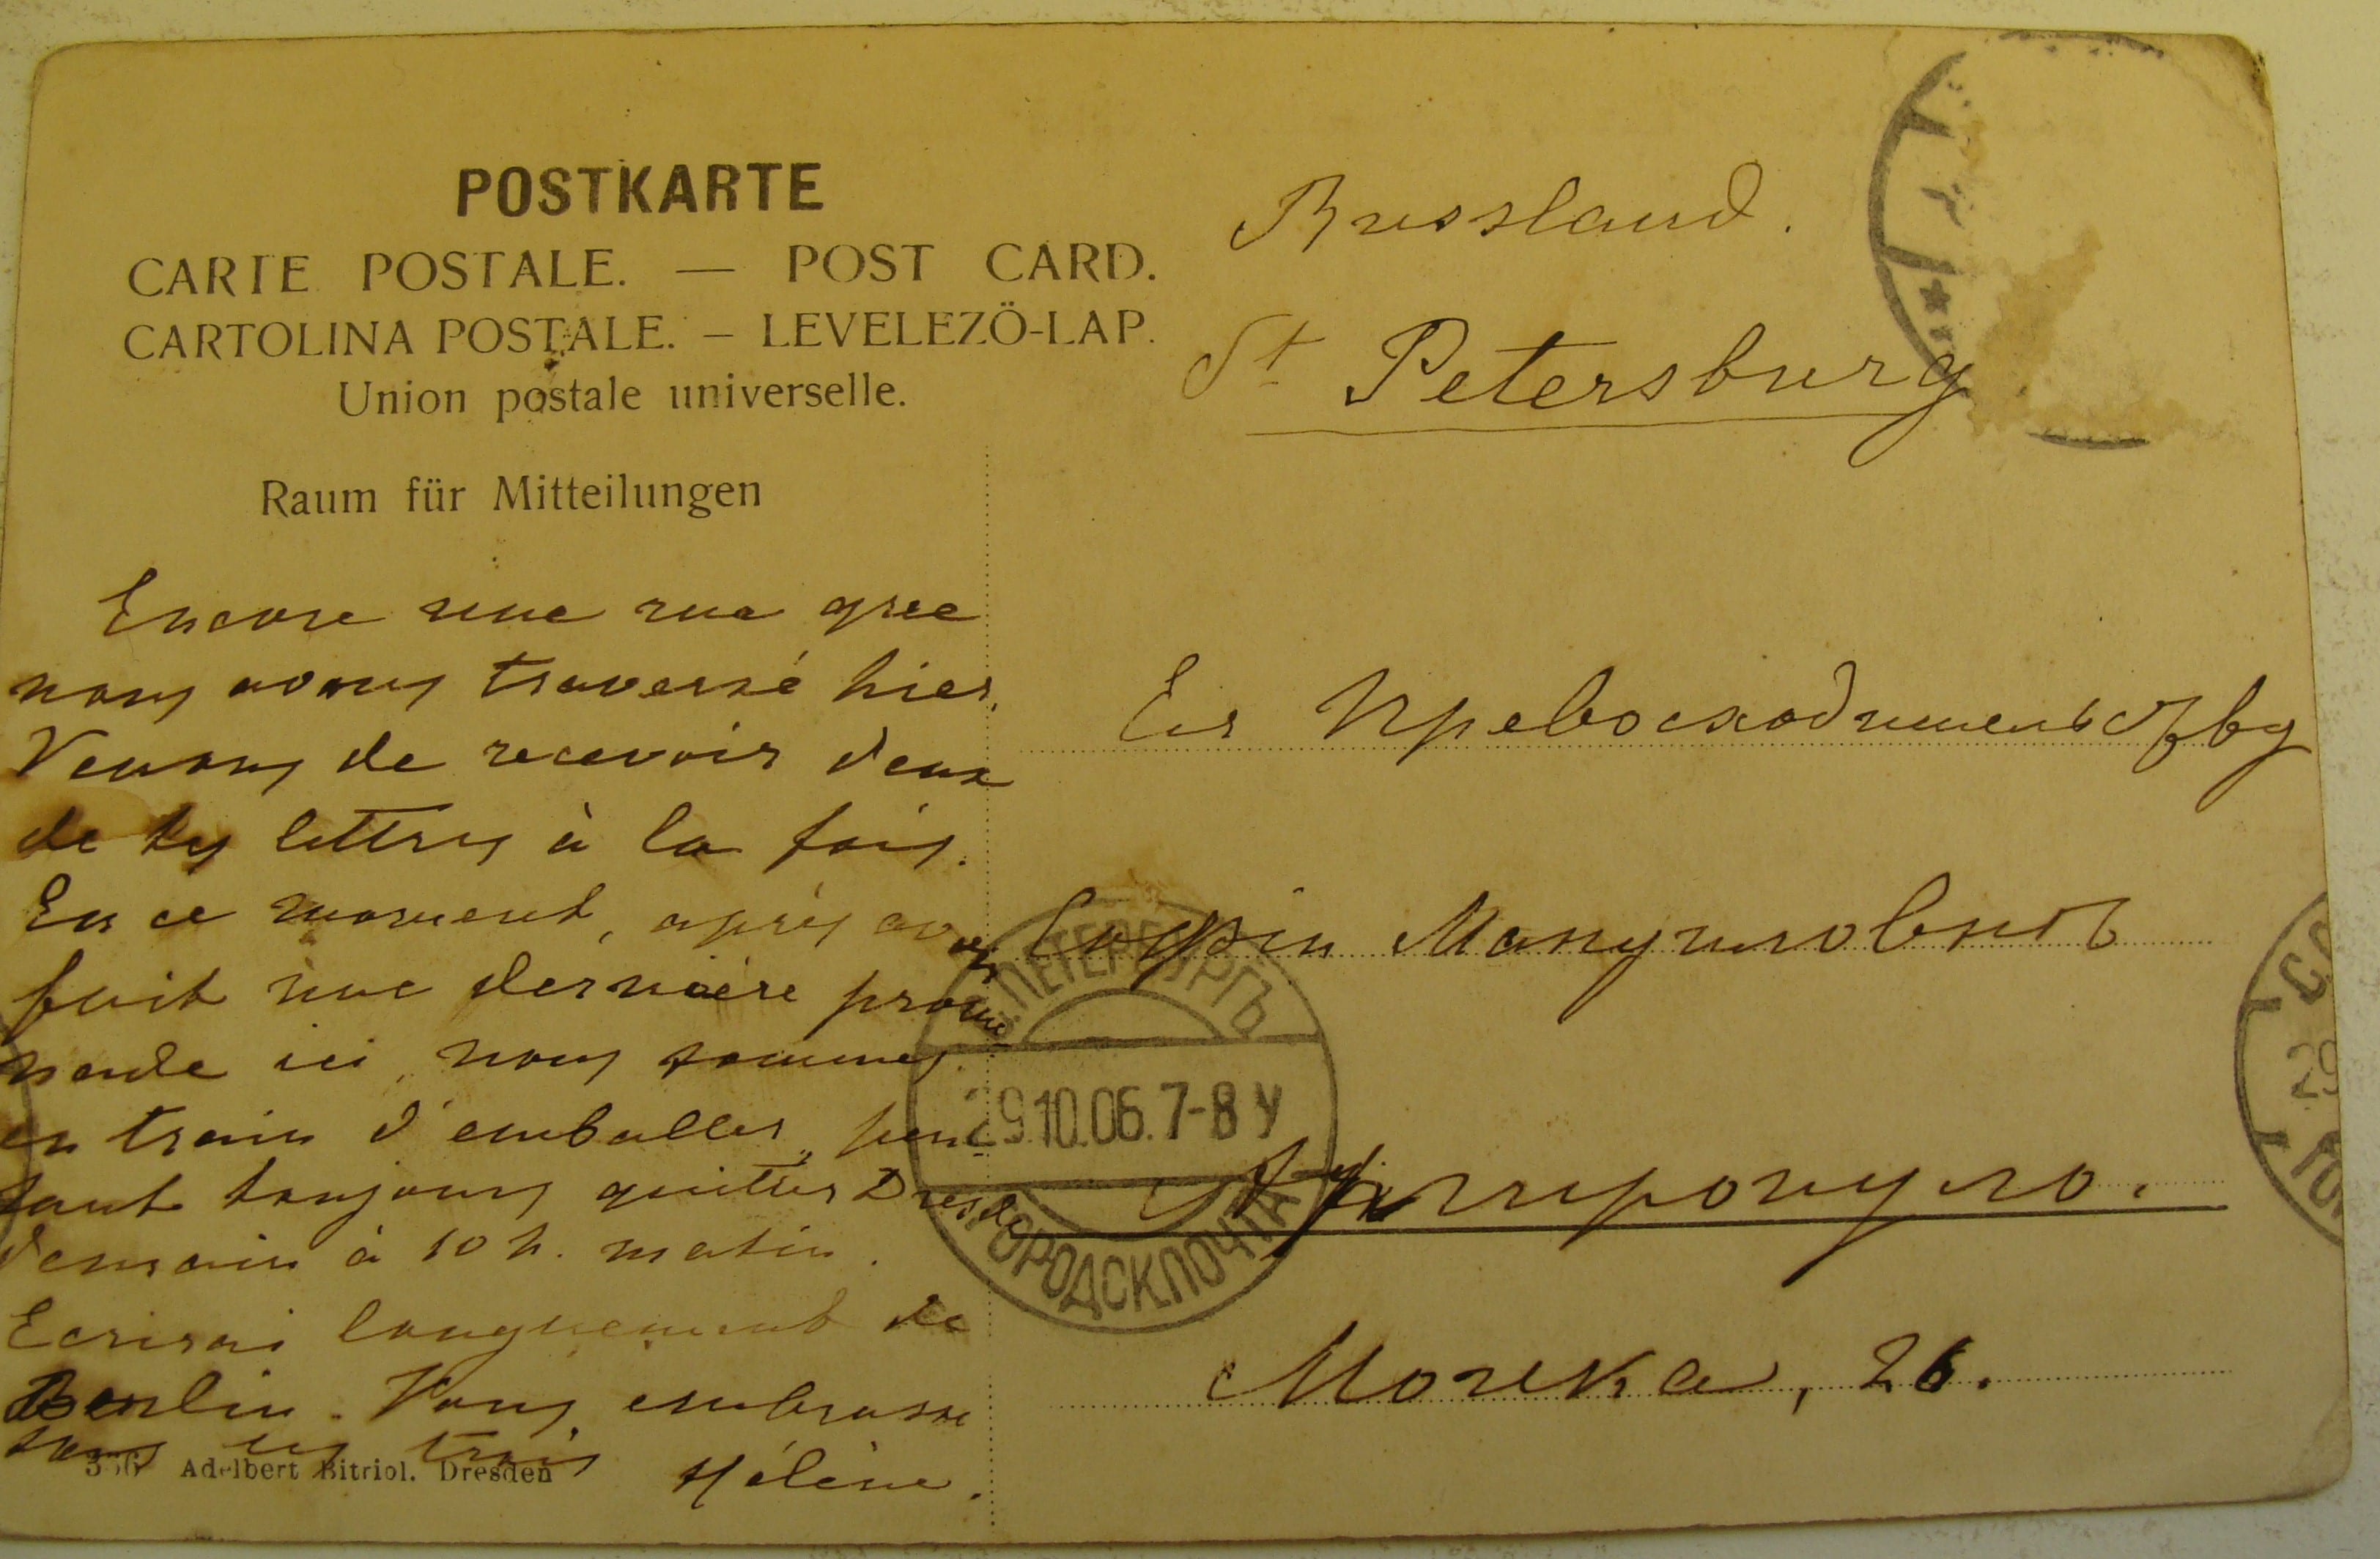 POSTKARTE
CARTE POSTALE. — POST CARD.
CARTOLINA POSTALE. — LEVELEZÖ-LAP.
Union postale universelle.
Raum für Mitteilungen
Encore une rue que
nous avons traversé hier.
Venons de recevoir deux
de tes lettres à la fois.
En ce moment, après avoir
fait une dernière prome-
nade ici, nous sommes
en train d'emballer, pen-
sant toujours quitter Dresde
demain à 10 h. matin.
Ecrirai longuement de
Berlin. Vous embrasse
tous les trois
Hélène.
336 Adelbert Bitriol. Dresden
Russland.
St Petersburg
Ея Превосходительству
Софіи Мануиловнѣ
Мойка, 26.
С.ПЕТЕРБУРГЪ
29.10.06.7-8 У
ГОРОДСК.ПОЧТА